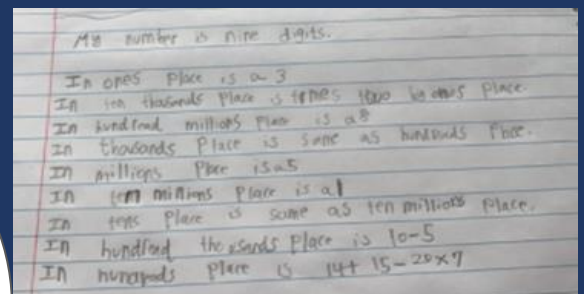 My number is nine digits.
In ones place is a 3
In ten thousands place is times two be ones place.
In hundread millions place is a 8
In thousands place is same as hundreds place.
In millions place is a 5
In ten millions place is a 1
In tens place is same as ten millions place.
In hundread thousands place is 10-5
In hundreds place is 14+ 15-20x7